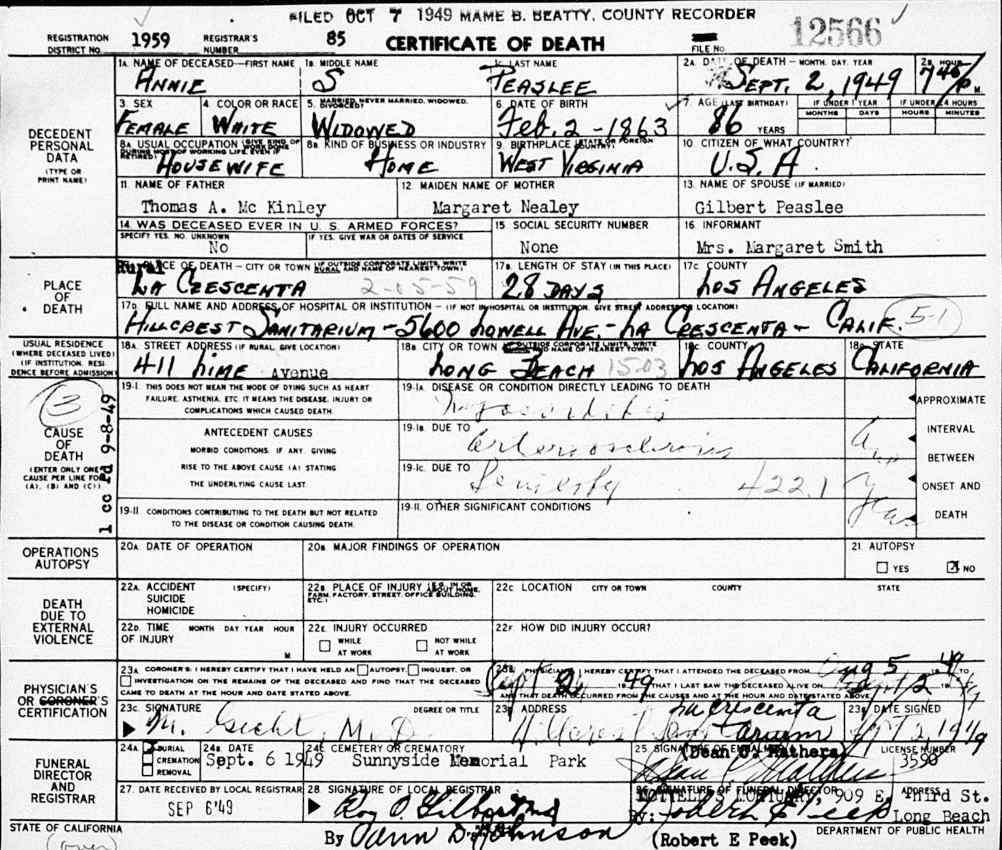 FILED OCT 7 1949 MAME B. BEATTY, COUNTY RECORDER
12566
REGISTRATION DISTRICT NO. 1959 REGISTRAR'S NUMBER 85 CERTIFICATE OF DEATH FILE NO.
1A. NAME OF DECEASED—FIRST NAME 1B. MIDDLE NAME 1C. LAST NAME 2A. DATE OF DEATH—MONTH, DAY, YEAR 2B. HOUR
ANNIE S PEASLEE SEPT. 2, 1949 7 45 P M.
DECEDENT PERSONAL DATA (TYPE OR PRINT NAME)
3. SEX 4. COLOR OR RACE 5. MARRIED, NEVER MARRIED, WIDOWED, DIVORCED 6. DATE OF BIRTH 7. AGE (LAST BIRTHDAY) IF UNDER 1 YEAR IF UNDER 24 HOURS
MONTHS DAYS HOURS MINUTES
FEMALE WHITE WIDOWED Feb. 2 - 1863 86 YEARS
8A. USUAL OCCUPATION (GIVE KIND OF WORK DONE DURING MOST OF WORKING LIFE, EVEN IF RETIRED) 8B. KIND OF BUSINESS OR INDUSTRY 9. BIRTHPLACE (STATE OR FOREIGN COUNTRY) 10. CITIZEN OF WHAT COUNTRY?
HOUSEWIFE HOME WEST VIRGINIA U.S.A
11. NAME OF FATHER 12. MAIDEN NAME OF MOTHER 13. NAME OF SPOUSE (IF MARRIED)
Thomas A. Mc Kinley Margaret Nealey Gilbert Peaslee
14. WAS DECEASED EVER IN U. S. ARMED FORCES? 15. SOCIAL SECURITY NUMBER 16. INFORMANT
SPECIFY YES, NO, UNKNOWN IF YES, GIVE WAR OR DATES OF SERVICE
No None Mrs. Margaret Smith
PLACE OF DEATH
Rural PLACE OF DEATH—CITY OR TOWN (IF OUTSIDE CORPORATE LIMITS, WRITE RURAL AND NAME OF NEAREST TOWN) 17B. LENGTH OF STAY (IN THIS PLACE) 17C. COUNTY
LA CRESCENTA 2-05-59 28 DAYS LOS ANGELES
17D. FULL NAME AND ADDRESS OF HOSPITAL OR INSTITUTION—(IF NOT IN HOSPITAL OR INSTITUTION, GIVE STREET ADDRESS OR LOCATION)
HILLCREST SANITARIUM - 5600 LOWELL AVE. - LA CRESCENTA - CALIF. 5-1
USUAL RESIDENCE (WHERE DECEASED LIVED) (IF INSTITUTION, RESIDENCE BEFORE ADMISSION)
18A. STREET ADDRESS (IF RURAL, GIVE LOCATION) 18B. CITY OR TOWN (IF OUTSIDE CORPORATE LIMITS, WRITE RURAL AND NAME OF NEAREST TOWN) 18C. COUNTY 18D. STATE
411 LIME Avenue LONG BEACH 1503 LOS ANGELES CALIFORNIA
3
1 cc pd 9-8-49
CAUSE OF DEATH (ENTER ONLY ONE CAUSE PER LINE FOR (A), (B) AND (C))
19-I. THIS DOES NOT MEAN THE MODE OF DYING SUCH AS HEART FAILURE, ASTHENIA, ETC. IT MEANS THE DISEASE, INJURY OR COMPLICATIONS WHICH CAUSED DEATH.
19-IA. DISEASE OR CONDITION DIRECTLY LEADING TO DEATH
Myocarditis
ANTECEDENT CAUSES
MORBID CONDITIONS, IF ANY, GIVING RISE TO THE ABOVE CAUSE (A) STATING THE UNDERLYING CAUSE LAST
19-IB. DUE TO
Arteriosclerosis
19-IC. DUE TO
Senility 422.1
APPROXIMATE INTERVAL BETWEEN ONSET AND DEATH
19-II. CONDITIONS CONTRIBUTING TO THE DEATH BUT NOT RELATED TO THE DISEASE OR CONDITION CAUSING DEATH.
19-II. OTHER SIGNIFICANT CONDITIONS
OPERATIONS AUTOPSY
20A. DATE OF OPERATION 20B. MAJOR FINDINGS OF OPERATION 21. AUTOPSY
YES X NO
DEATH DUE TO EXTERNAL VIOLENCE
22A. ACCIDENT SUICIDE HOMICIDE (SPECIFY) 22B. PLACE OF INJURY (E.G., IN OR ABOUT HOME, FARM, FACTORY, STREET, OFFICE BUILDING, ETC.) 22C. LOCATION CITY OR TOWN COUNTY STATE
22D. TIME OF INJURY MONTH DAY YEAR HOUR M 22E. INJURY OCCURRED WHILE AT WORK NOT WHILE AT WORK 22F. HOW DID INJURY OCCUR?
PHYSICIAN'S OR CORONER'S CERTIFICATION
23A. CORONER'S: I HEREBY CERTIFY THAT I HAVE HELD AN AUTOPSY, INQUEST, OR INVESTIGATION ON THE REMAINS OF THE DECEASED AND FIND THAT THE DECEASED CAME TO DEATH AT THE HOUR AND DATE STATED ABOVE.
23B. PHYSICIAN'S: I HEREBY CERTIFY THAT I ATTENDED THE DECEASED FROM Aug 5 1949 TO Sept 2 1949 THAT I LAST SAW THE DECEASED ALIVE ON Sept 2 1949 AND THAT DEATH OCCURRED FROM THE CAUSES AND AT HOUR AND DATE STATED ABOVE.
23C. SIGNATURE DEGREE OR TITLE 23D. ADDRESS 23E. DATE SIGNED
M. D. La Crescenta Hillcrest Sanitarium Sept 2, 1949
FUNERAL DIRECTOR AND REGISTRAR
24A. BURIAL CREMATION REMOVAL 24B. DATE 24C. CEMETERY OR CREMATORY 25. SIGNATURE OF EMBALMER LICENSE NUMBER
Sept. 6 1949 Sunnyside Memorial Park (Dean C. Mathers) 3590
27. DATE RECEIVED BY LOCAL REGISTRAR 28. SIGNATURE OF LOCAL REGISTRAR 26. SIGNATURE OF FUNERAL DIRECTOR ADDRESS
SEP 6 '49 Roy O. Gilbert MOTTELL'S MORTUARY, 909 E. Third St.
By: Robert E Peek Long Beach
By Johnson (Robert E Peek)
STATE OF CALIFORNIA DEPARTMENT OF PUBLIC HEALTH
(over)